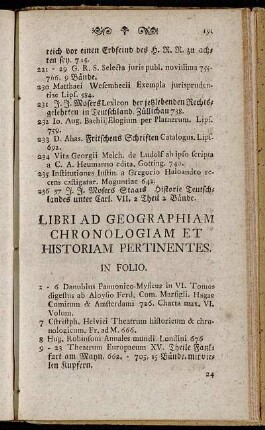 191
reich vor einen Erbfeind des H. R. R. zu ach-
ten sey. 714.
221 - 29 G. R. S. Selecta juris publ. novissima 755-
766. 9 Bände.
230 Matthaei Wesembecii Exempla jurispruden-
tiae Lipf. 584.
231 J. J. Mosers Lexicon der jeztlebenden Rechts-
gelehrten in Teutschland Züllichau 738.
232 Io. Aug. Bachii Elogium per Platnerum. Lips.
759.
233 D. Ahas. Fritschens Schriften Catalogus. Lips.
692.
234 Vita Georgii Melch. de Ludolf ab ipso scripta
a C. A. Heumanno edita. Gotting. 740.
235 Institutiones Iustin. a Gregorio Haloandro re-
cens castigatae. Moguntiae 642.
236 37 J. J. Mosers Staats Historie Teutsch-
landes unter Carl. VII. 2 Theil 2 Bände.
LIBRI AD GEOGRAPHIAM
CHRONOLOGIAM ET
HISTORIAM PERTINENTES.
IN FOLIO.
1 - 6 Danubius Pannonico-Mysicus in VI. Tomos
digestus ab Aloysio Ferd. Com. Marsigli. Hagae
Comitum & Amsterdami 726. Charta max. VI.
Volum.
7 Christoph. Helvici Theatrum historicum & chro-
nologicum. Fr. ad M. 666.
8 Hug. Robinsoni Annales mundi. Londini 676
9 - 23 Theatrum Europaeum XV. Theile Fank-
furt am Mayn. 662. - 705. 15 Bände. mit vie-
len Kupfern.
24